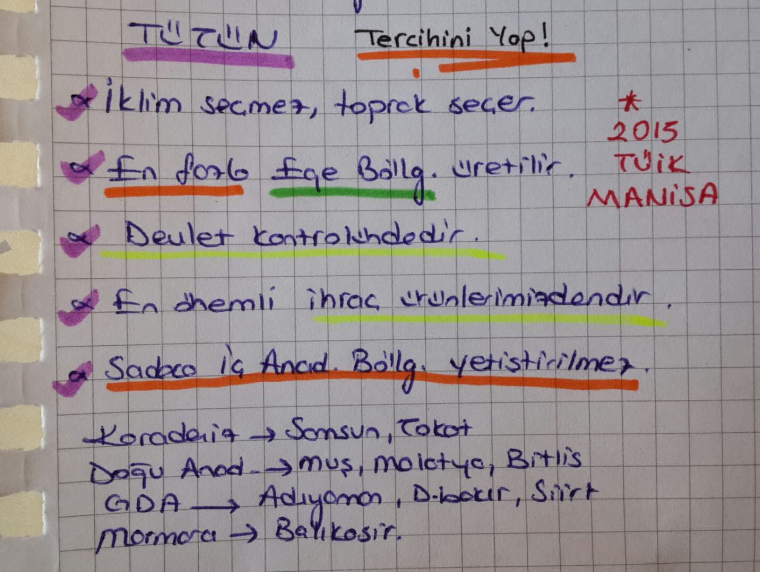 TÜTÜN Tercihini Yap!
İklim seçmez, toprak seçer.
En fazla Ege Böllg. üretilir.
* 2015 TÜİK MANİSA
Devlet kontrolündedir.
En önemli ihraç ürünlerimizdendir.
Sadece İç Anad. Böllg. yetistirilmez.
Karadeniz → Samsun, Tokat
Doğu Anad. → Muş, Malatya, Bitlis
GDA → Adıyaman, D.bakır, Siirt
Marmara → Balıkesir.